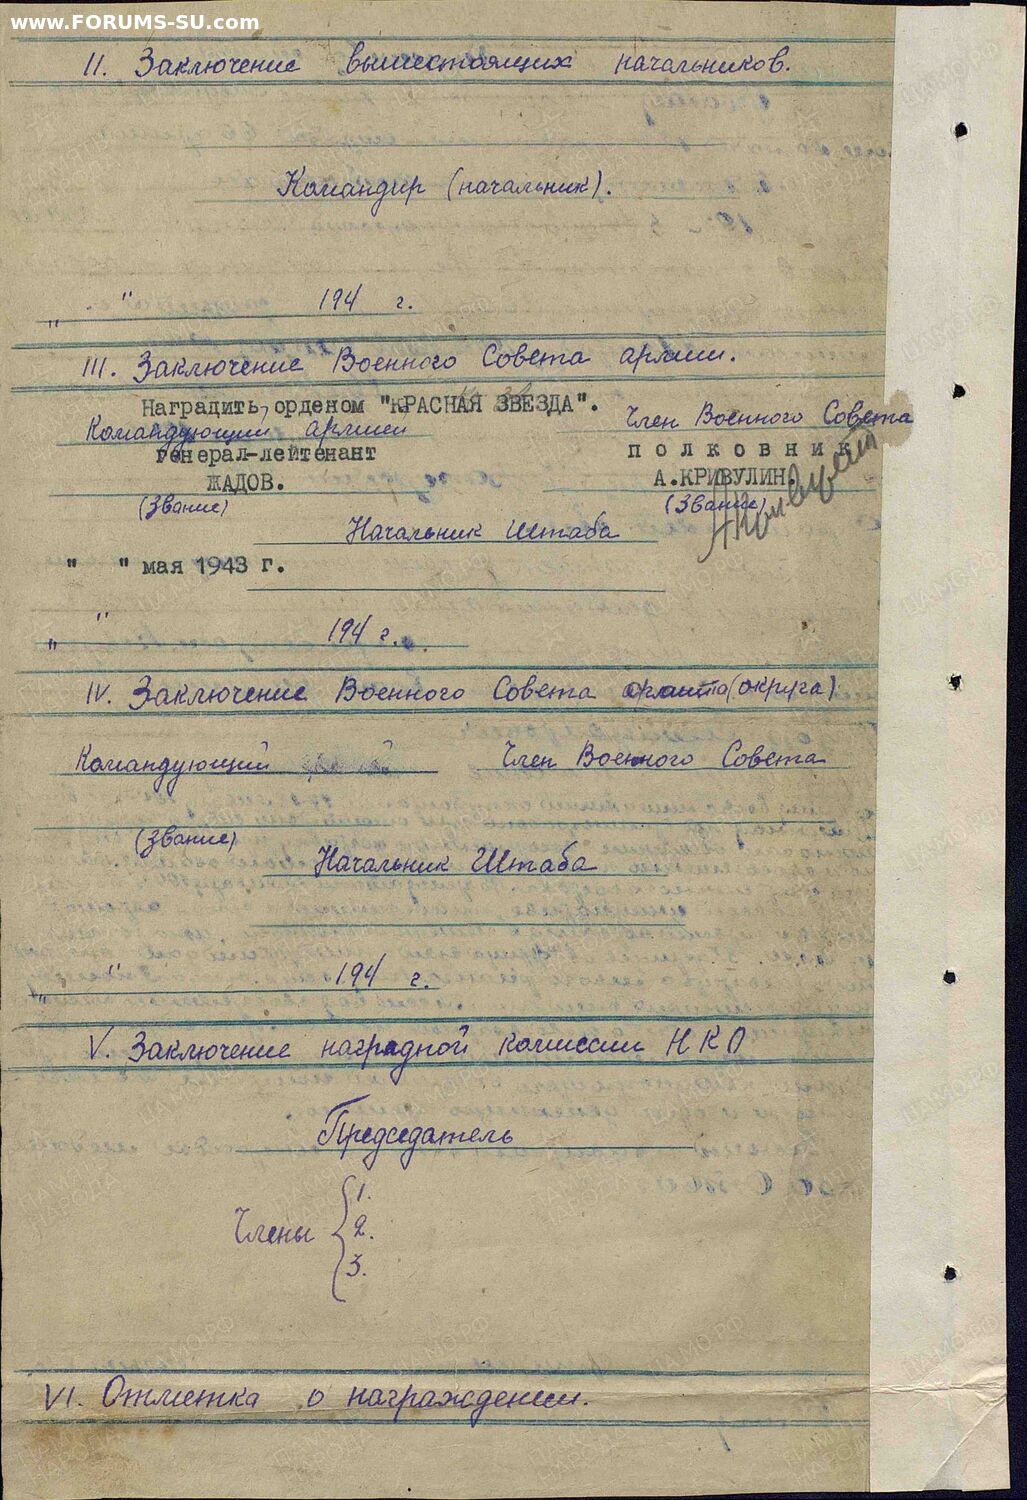 www.FORUMS-SU.com
II. Заключение вышестоящих начальников.
Командир (начальник).
„ " 194 г.
III. Заключение Военного Совета армии.
Наградить орденом "КРАСНАЯ ЗВЕЗДА".
Командующий армией
Член Военного Совета
генерал-лейтенант
полковник
ЖАДОВ.
А.КРИВУЛИН.
(Звание)
(Звание)
Начальник Штаба
" " мая 1943 г.
„ " 194 г.
IV. Заключение Военного Совета фронта (округа)
Командующий
Член Военного Совета
(Звание)
Начальник Штаба
„ " 194 г.
V. Заключение наградной комиссии НКО
Председатель
Члены
1.
2.
3.
VI. Отметка о награждении.